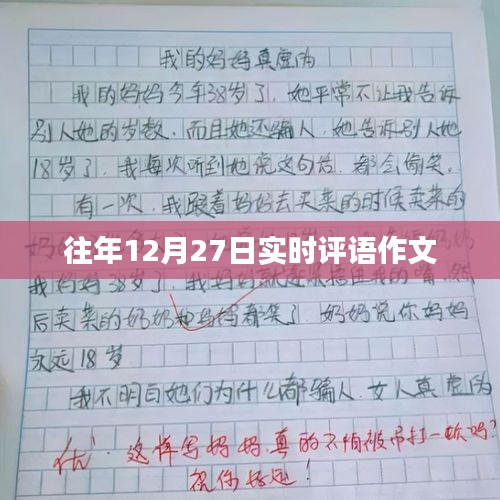 我的妈妈真虚伪
我的妈妈今年38岁了，她平常不让我告诉
别人她的岁数，而且她还骗人，她告诉别人她
18岁了，我每次听到她说这句话，都会偷笑。
有一次，我跟着妈妈去买菜的时候卖菜的
往年12月27日实时评语作文
我妈妈38岁，我妈妈就赶紧捂住我的嘴，然
后卖菜的奶奶和妈妈都笑了，奶奶说你妈妈
永远18岁
我不明白她们为什么都骗人，女人真虚伪
优．这样写妈妈，真的不怕被吊打一顿吗？
祝你好运！